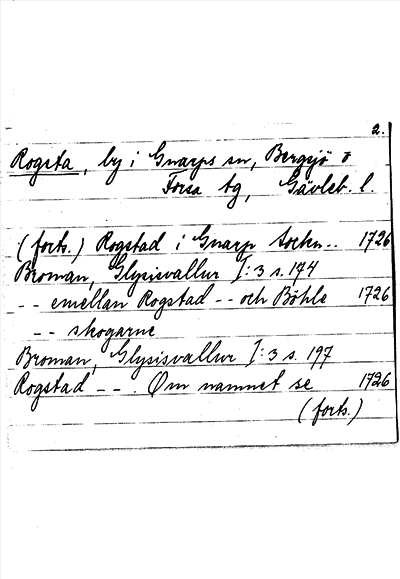 2.
Rogsta, by i Gnarps sn, Bergsjö o
Forsa tg, Gävleb. l.
(forts.) Rogstad i Gnarp Sochn.. 1726
Broman, Glysisvallur I:3 s. 144
-- emellan Rogstad -- och Böhle 1726
-- skogarne
Broman, Glysisvallur I:3 s. 197
Rogstad -- . Om namnet se 1726
(forts.)